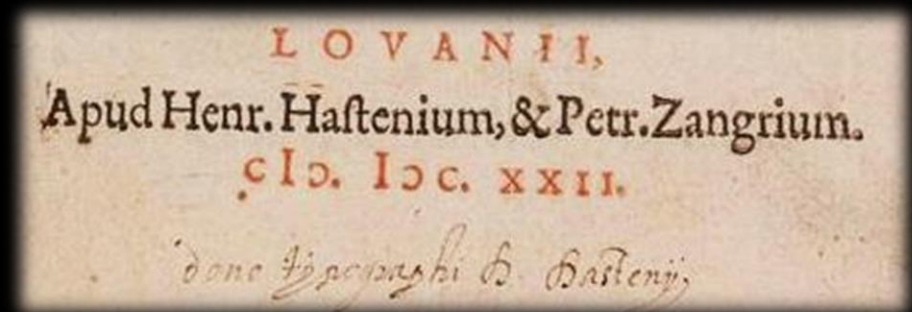 LOVANII,
Apud Henr. Haſtenium, & Petr. Zangrium.
cIↄ. Iↄc. XXII.
dono typographi H. Hastenij,